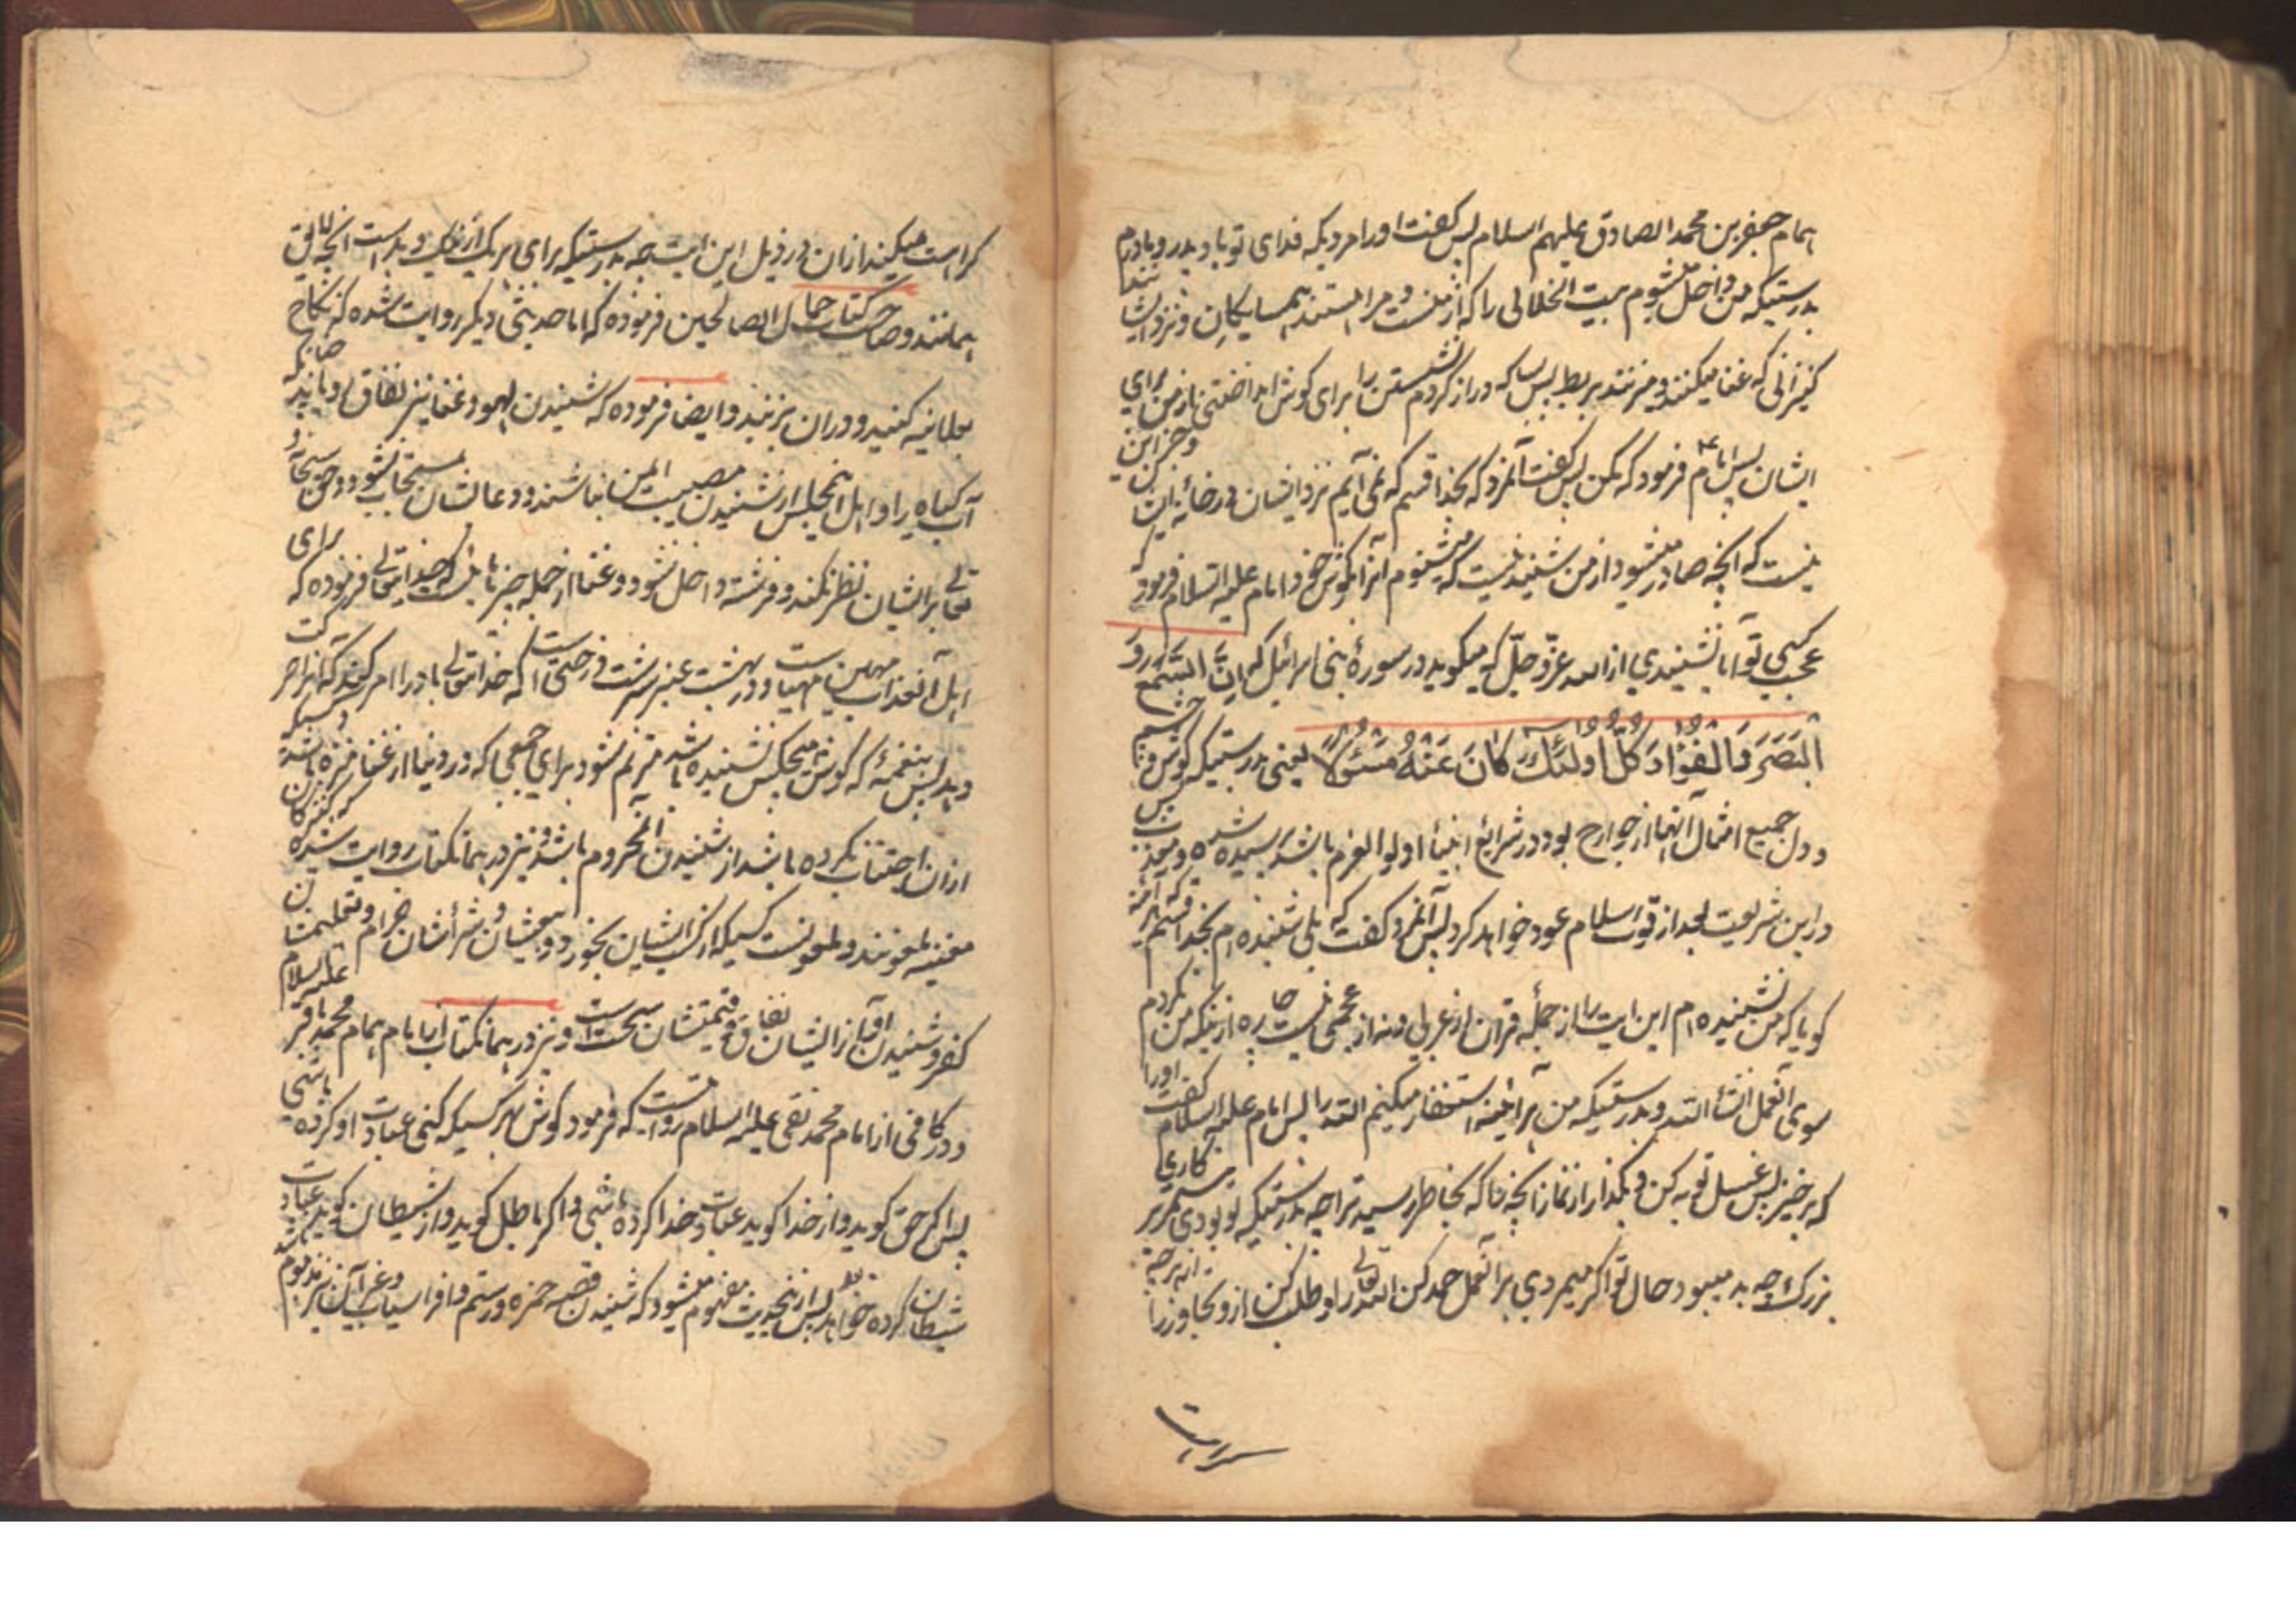 همام جعفر بن محمد الصادق علیهم السلام پس گفت او را مردیکه فدای تو باد پدر و مادرم
بدرستیکه من داخل میشوم بیت الخلائی را که از منست و مرا هستند همسایگان و نزد ایشانند
کنیزانی که غنا میکنند و میزنند بربط پس بسا که دراز کردم نشستن را برای گوش انداختنی از من برای
ایشان پس امام ع فرمود که مکن پس گفت آنمرد که بخدا قسم که نمی آیم نزد ایشان در خانه ایشان و جز این
نیست که آنچه صادر میشود از من شنیدنیست که میشنوم آنرا بگوش خود امام علیه السلام فرمود که
عجب کسی تو آیا نشنیدی از الله عزّ و جلّ که میگوید در سورهٔ بنی اسرائیل که اِنَّ السَّمْعَ وَ
الْبَصَرَ وَالْفُؤَادَ كُلُّ اُولٰئِكَ كَانَ عَنْهُ مَسْئُولًا یعنی بدرستیکه گوش و چشم
و دل جمیع امثال آنها از جوارح بود در شرائع انبیا اولو العزم باشد پرسیده شده و
در این شریعت بعد از قوت اسلام عود خواهد کرد پس آنمرد گفت که بلی شنیده ام بخدا قسم
گویا که من نشنیده ام این آیت را از جمله قرآن از عربی و نه از عجمی از اینکه من نکردم
سوی آنعمل انشاء الله و بدرستیکه من هر آئینه استغفار میکنم الله را پس امام علیه السلام گفت او را
که برخیز پس غسل توبه کن و بگذار از نماز آنچه را که بخاطر رسید ترا چه بدرستیکه تو بودی بر کاری
بزرگ و چه بد میبود حال تو اگر میمردی بر آنعمل حمد کن الله تعالی را و طلب کن ازو تجاوز را از هر چه
کراهت میکند از آن در ذیل این آیت چه بدرستیکه برای هر یک از نیک و بد است آنچه لایق
همانند و صاحب کتاب جمال الصالحین فرموده که اما حدیثی دیگر روایت شده که نکاح
بعلانیه کنید و در آن بزنید و ایضا فرموده که شنیدن لهو و غنا نیز نفاق رویاند چنانکه
آب گیاه را و اهل آنمجلس از شنیدن مصیبت ایمن نباشند و دعا ایشان مستجاب نشود و حق سبحانه و
تعالی بر ایشان نظر نکند و فرشته داخل نشود و غنا از جمله چیزهائیست که خدایتعالی فرموده که برای
اهل آن عذاب مهین مهیاست و در بهشت عنبر سرشت درختی است که خدایتعالی باد را امر کند که آنرا حرکت
دهد پس بنغمهٔ که گوش هیچکس نشنیده باشد مترنم شود برای جمعی که در دنیا از غنا منزه باشند و کسیکه
از آن اجتناب نکرده باشد از شنیدن آن محروم باشد و نیز در همان کتاب روایت شده که کنیزکان
مغنیه ملعونند و ملعونست کسیکه از کسب ایشان بخورد و بیع ایشان و شراشان حرام و تعلیمشان
کفر و شنیدن آواز ایشان نفاق و قیمتشان سحت است و نیز در همان کتاب از امام همام محمد باقر علیه السلام
و در کافی از امام محمد تقی علیه السلام روایتست که فرمود گوش بهر کسیکه کنی عبادت او کرده باشی
پس اگر حق گوید و از خدا گوید عبادت خدا کرده باشی و اگر باطل گوید و از شیطان گوید عبادت
شیطان کرده خواهد بود پس از اینحدیث مفهوم میشود که شنیدن قصه حمزه و رستم و افراسیاب و غیر آن نیز مذموم باشد